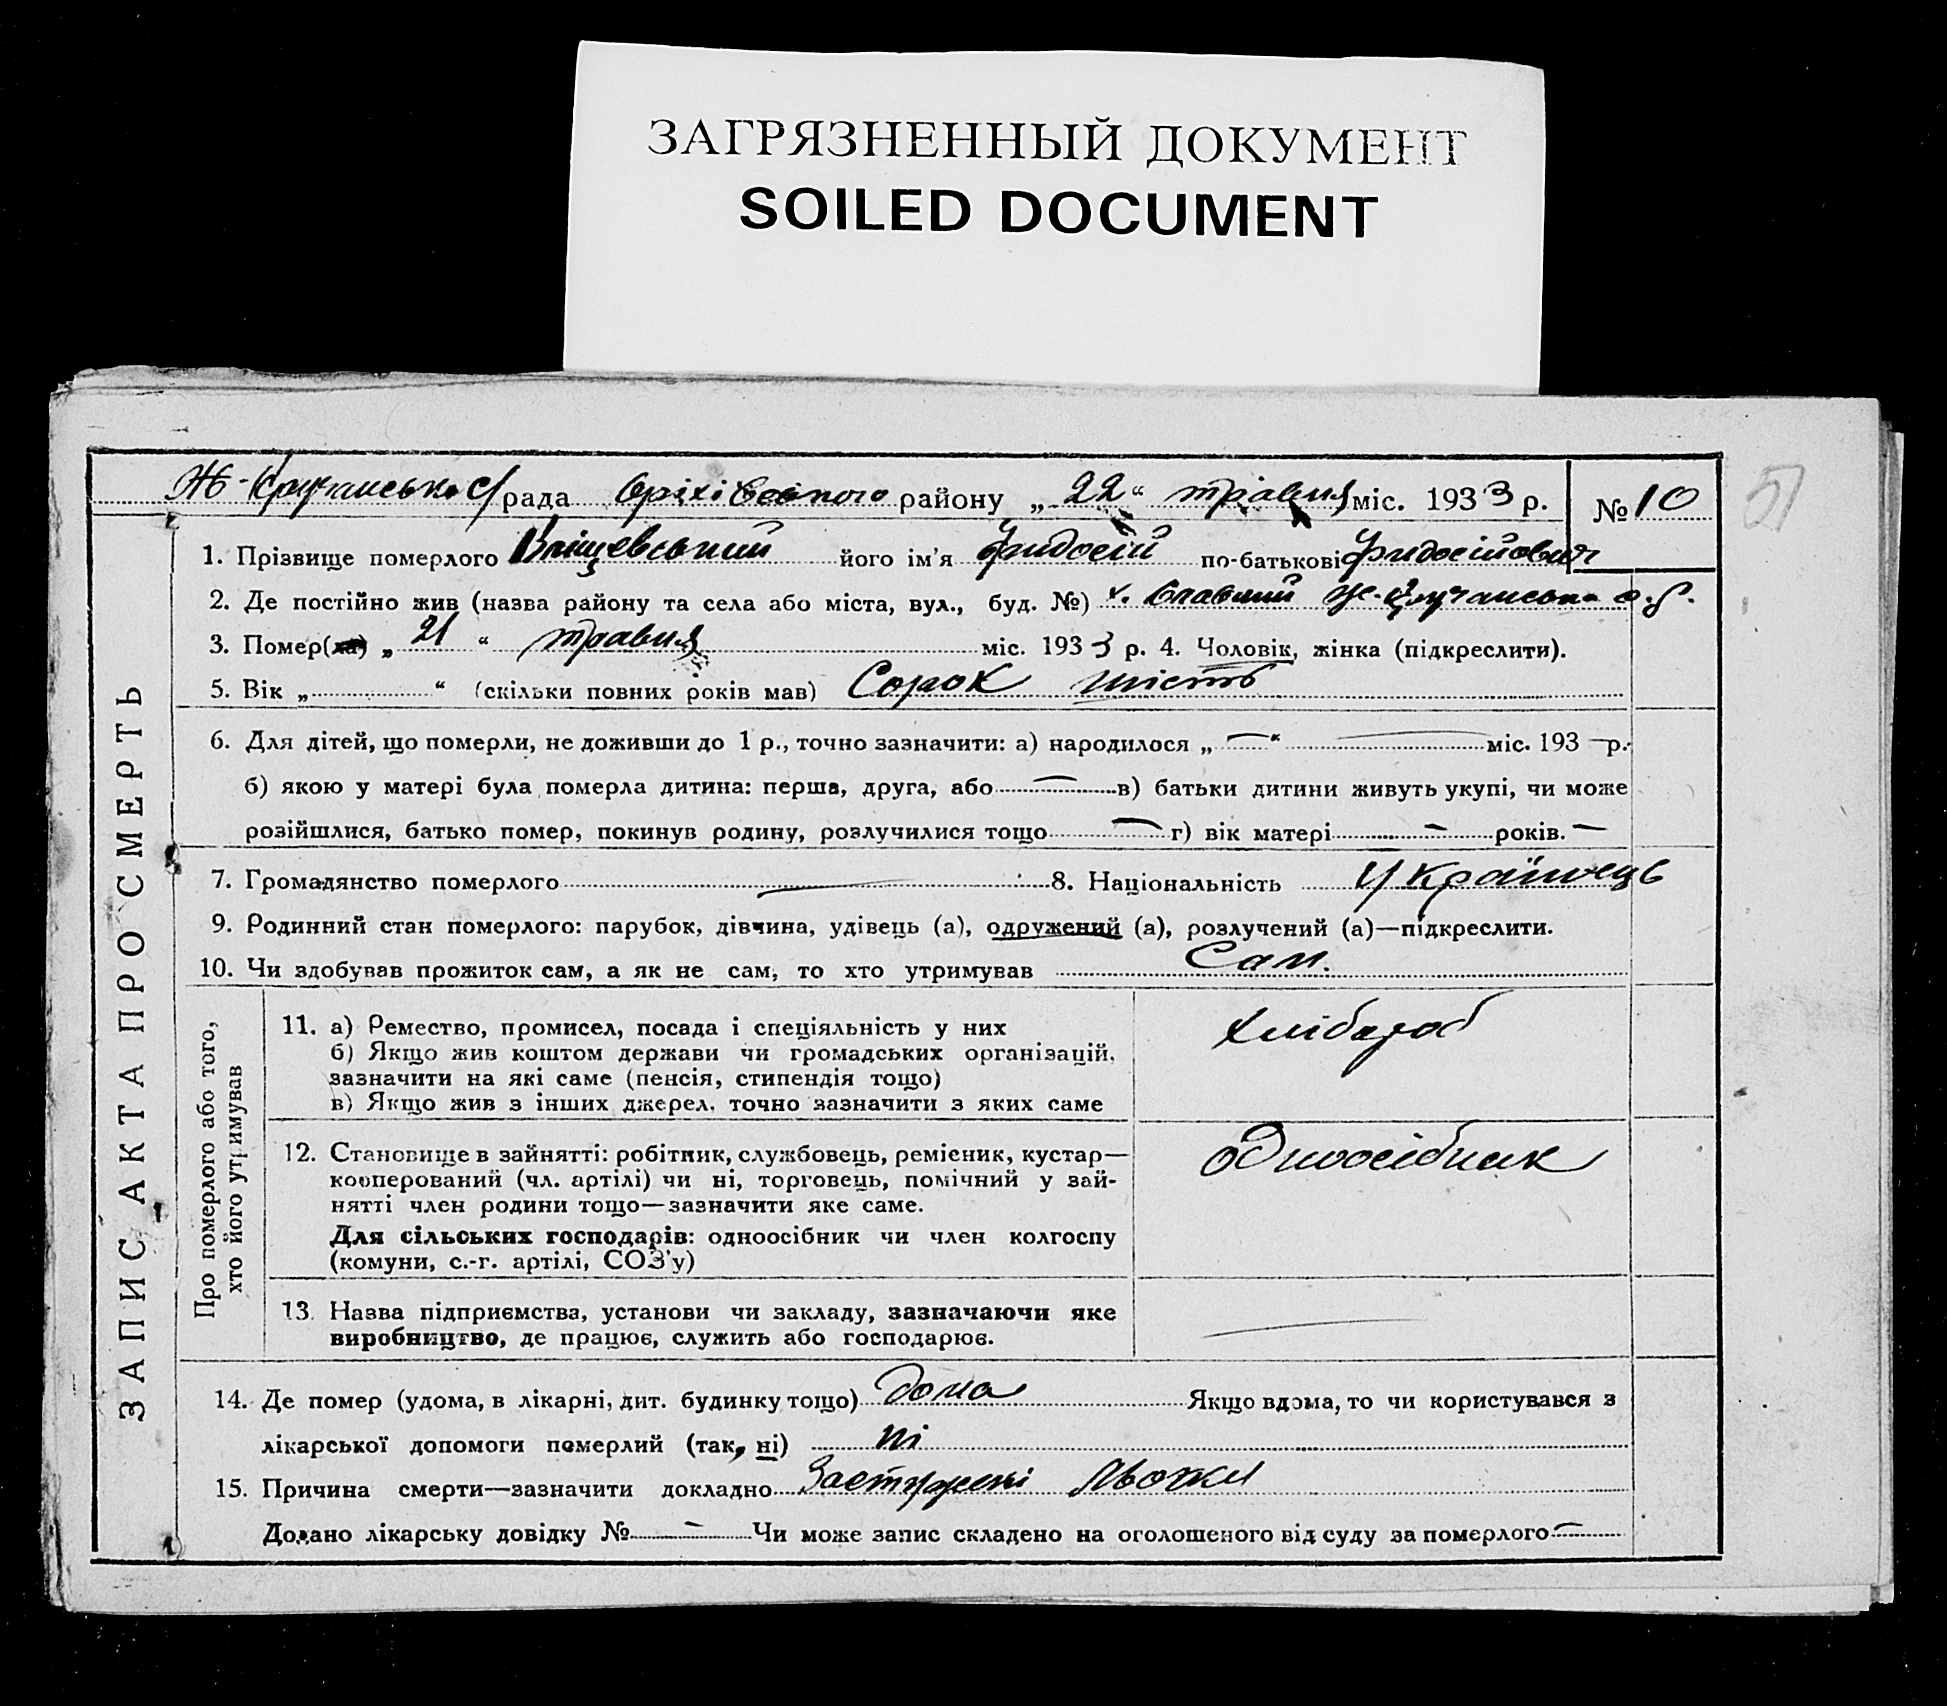 ЗАГРЯЗНЕННЫЙ ДОКУМЕНТ
SOILED DOCUMENT
51
рада Оріхівського району „22“ травня міс. 1933 р. № 10
ЗАПИС АКТА ПРО СМЕРТЬ
1. Прізвище померлого його ім'я Фидосій по-батькові Фидосійович
2. Де постійно жив (назва району та села або міста, вул., буд. №) х.
3. Помер(ла) „21“ травня міс. 1933 р. 4. Чоловік, жінка (підкреслити).
5. Вік „ “ (скільки повних років мав) Сорок шість
6. Для дітей, що померли, не доживши до 1 р., точно зазначити: а) народилося „—“ — міс. 193 — р.
б) якою у матері була померла дитина: перша, друга, або — в) батьки дитини живуть укупі, чи може
розійшлися, батько помер, покинув родину, розлучилися тощо — г) вік матері — років. —
7. Громадянство померлого — 8. Національність Українець
9. Родинний стан померлого: парубок, дівчина, удівець (а), одружений (а), розлучений (а)—підкреслити.
10. Чи здобував прожиток сам, а як не сам, то хто утримував Сам.
Про померлого або того,
хто його утримував
11. а) Ремество, промисел, посада і спеціяльність у них хлібороб
б) Якщо жив коштом держави чи громадських організацій,
зазначити на які саме (пенсія, стипендія тощо)
в) Якщо жив з інших джерел, точно зазначити з яких саме
12. Становище в зайнятті: робітник, службовець, ремісник, кустар— одноосібник
кооперований (чл. артілі) чи ні, торговець, помічний у зай-
нятті член родини тощо—зазначити яке саме.
Для сільських господарів: одноосібник чи член колгоспу
(комуни, с.-г. артілі, СОЗ'у)
13. Назва підприємства, установи чи закладу, зазначаючи яке
виробництво, де працює, служить або господарює. —
14. Де помер (удома, в лікарні, дит. будинку тощо) дома Якщо вдома, то чи користувався з
лікарської допомоги померлий (так, ні) ні
15. Причина смерти—зазначити докладно
Додано лікарську довідку № — Чи може запис складено на оголошеного від суду за померлого —